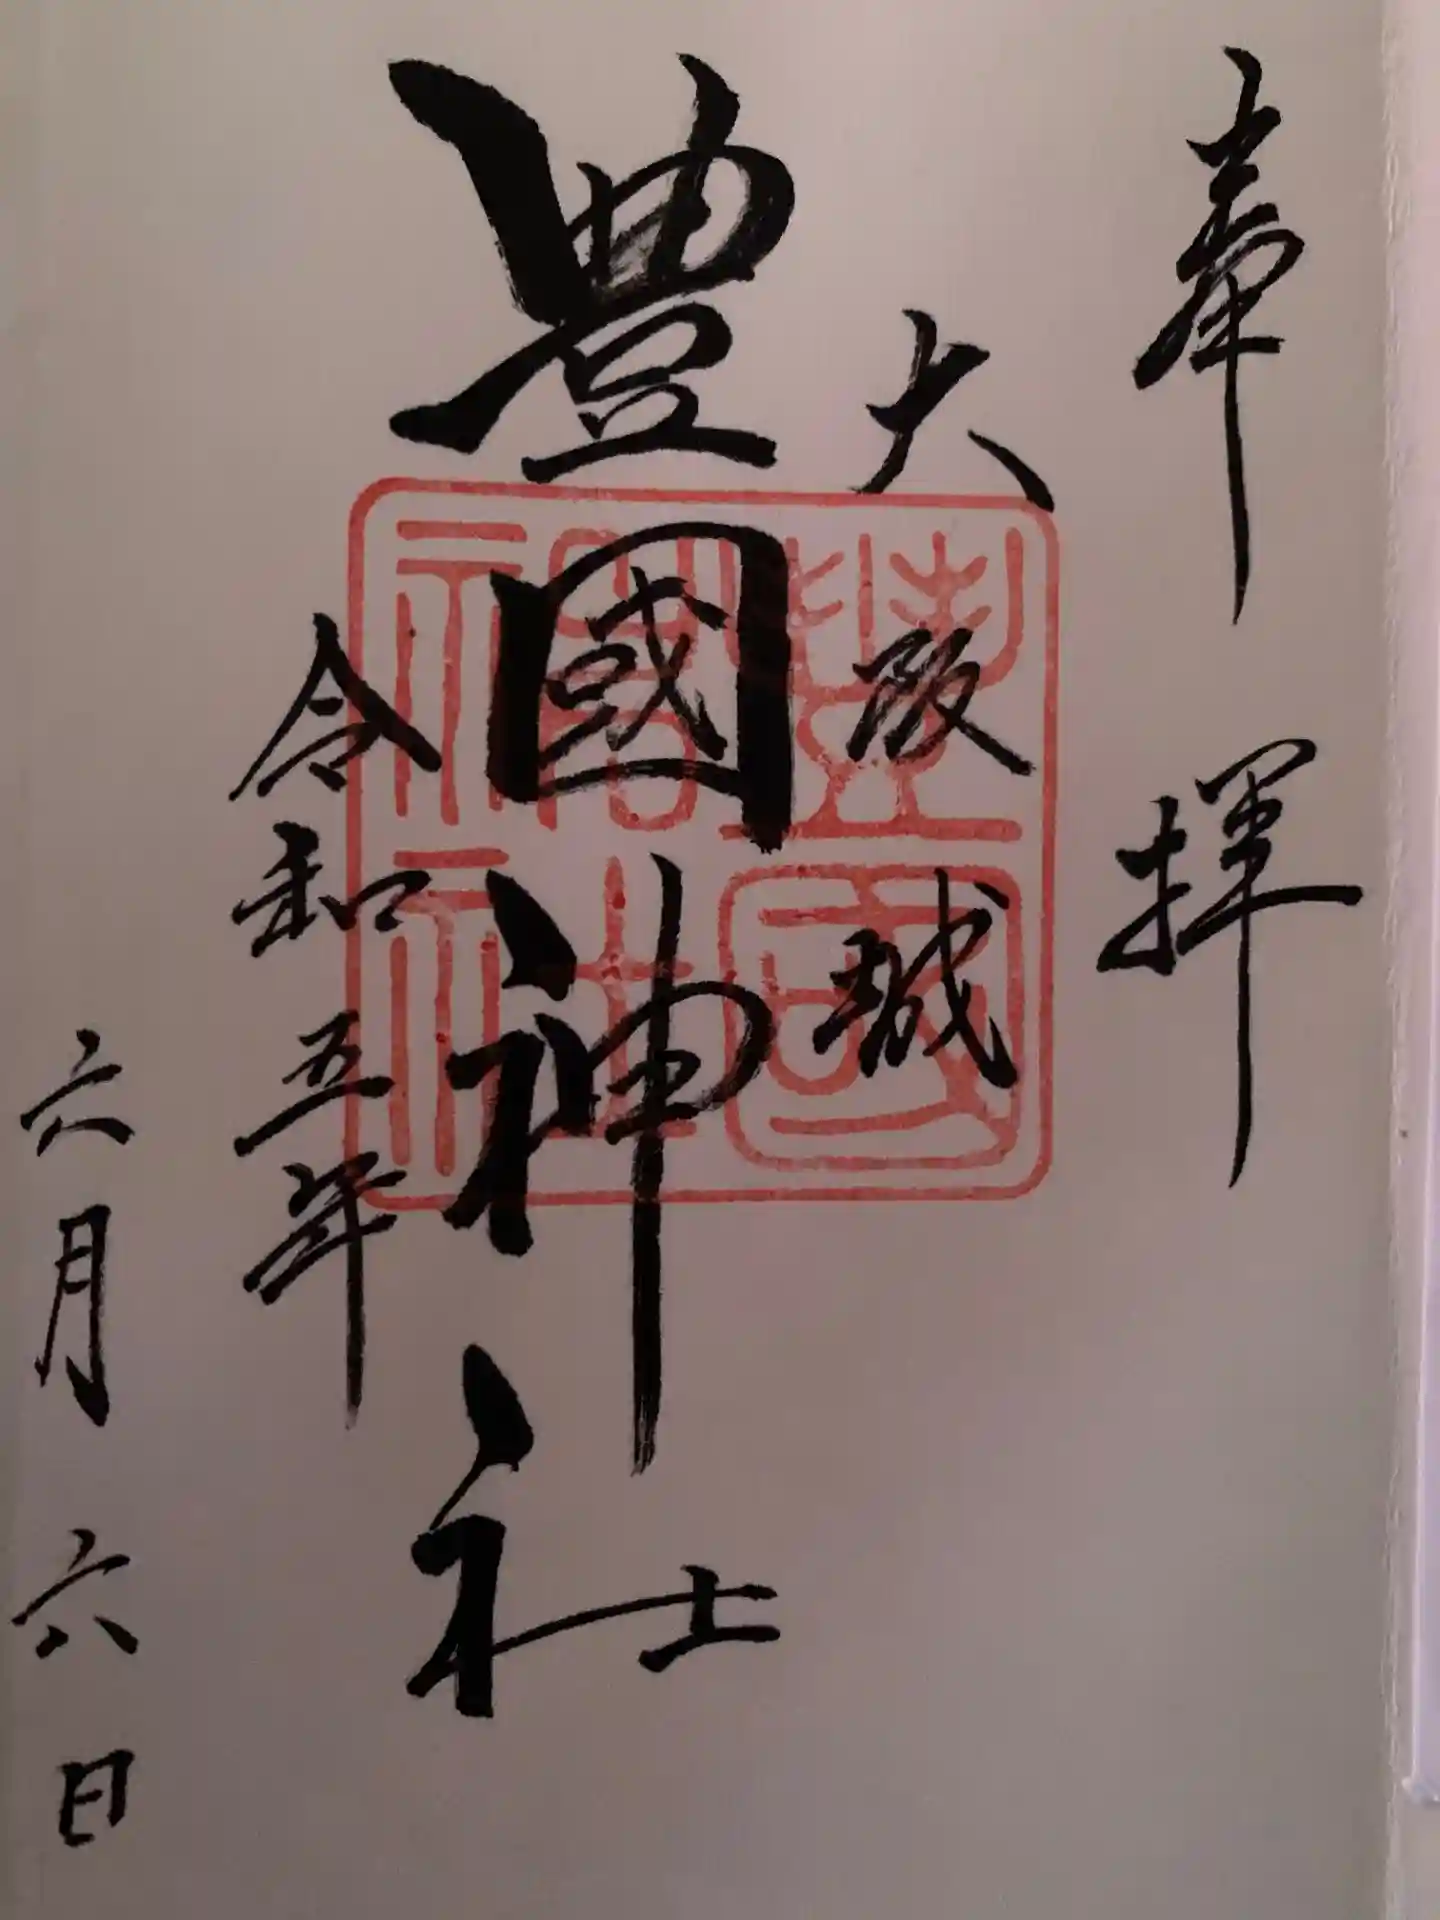 奉拝
大阪城
豊國神社
令和五年
六月六日
豊國神社